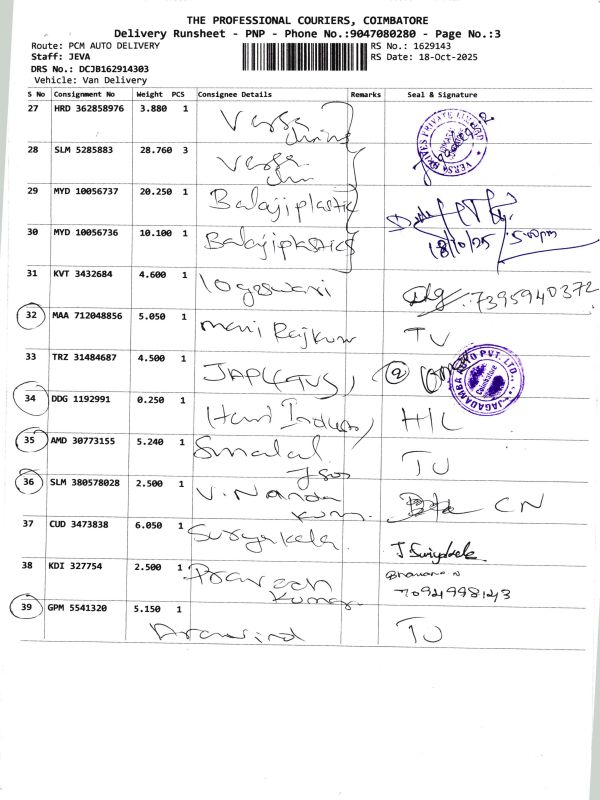 THE PROFESSIONAL COURIERS, COIMBATORE
Delivery Runsheet - PNP - Phone No.:9047080280 - Page No.:3
Route: PCM AUTO DELIVERY
RS No.: 1629143
Staff: JEVA
RS Date: 18-Oct-2025
DRS No.: DCJB162914303
Vehicle: Van Delivery
S No Consignment No Weight PCS Consignee Details Remarks Seal & Signature
27 HRD 362858976 3.880 1 Versa
28 SLM 5285883 28.760 3 Versa
29 MYD 10056737 20.250 1 Balaji plastic
30 MYD 10056736 10.100 1 Balaji plastics 18/10/25 5:00pm
31 KVT 3432684 4.600 1 logeswari 7395940372
32 MAA 712048856 5.050 1 mani Rajkumar TU
33 TRZ 31484687 4.500 1 JAPL (TVS) JAGADAMBA AUTO PVT. LTD.
34 DDG 1192991 0.250 1 Hari Industry H/L
35 AMD 30773155 5.240 1 TU
36 SLM 380578028 2.500 1 V. Nanda Kum. CN
37 CUD 3473838 6.050 1 Suryakala. J Suriyakala
38 KDI 327754 2.500 1 Praveen Kumar. Bhavana N 7094998143
39 GPM 5541320 5.150 1 Aravind TU